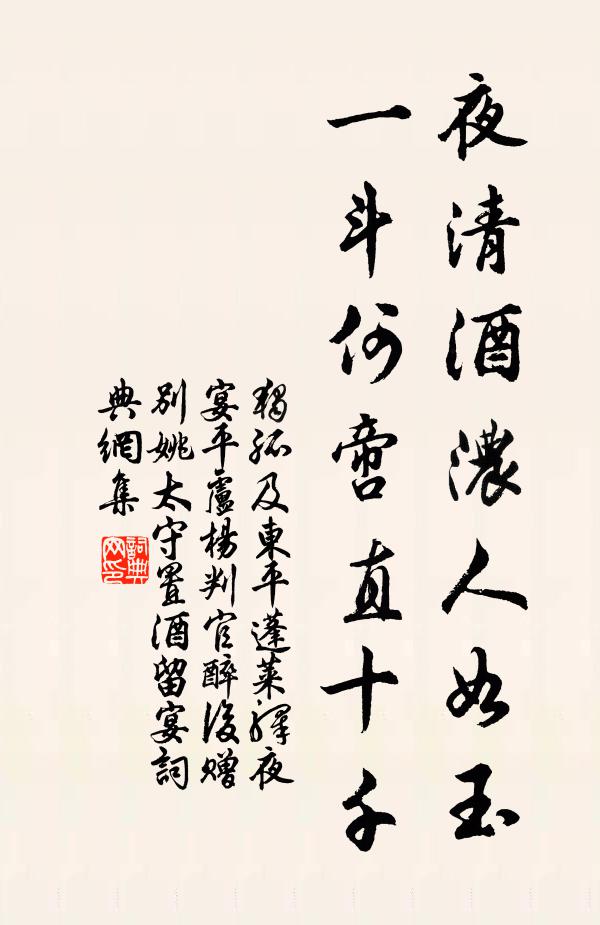 夜清酒濃人如玉
一斗何啻直十千
獨孤及東平蓬萊驛夜
宴平盧楊判官醉後贈
別姚太守置酒留宴詞
典網集
詞典
网印